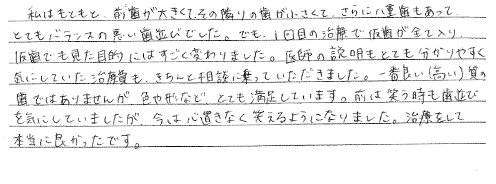 私はもともと、前歯が大きくてその隣りの歯が小さくて、さらに八重歯もあって、
とてもバランスの悪い歯並びでした。でも、1回目の治療で仮歯が全て入り、
仮歯でも見た目的にはすごく変わりました。医師の説明もとても分かりやすく
気にしていた治療費も、きちんと相談に乗っていただきました。一番良い(高い)質の
歯ではありませんが、色や形など、とても満足しています。前は笑う時も歯並び
を気にしていましたが、今は心置きなく笑えるようになりました。治療をして
本当に良かったです。